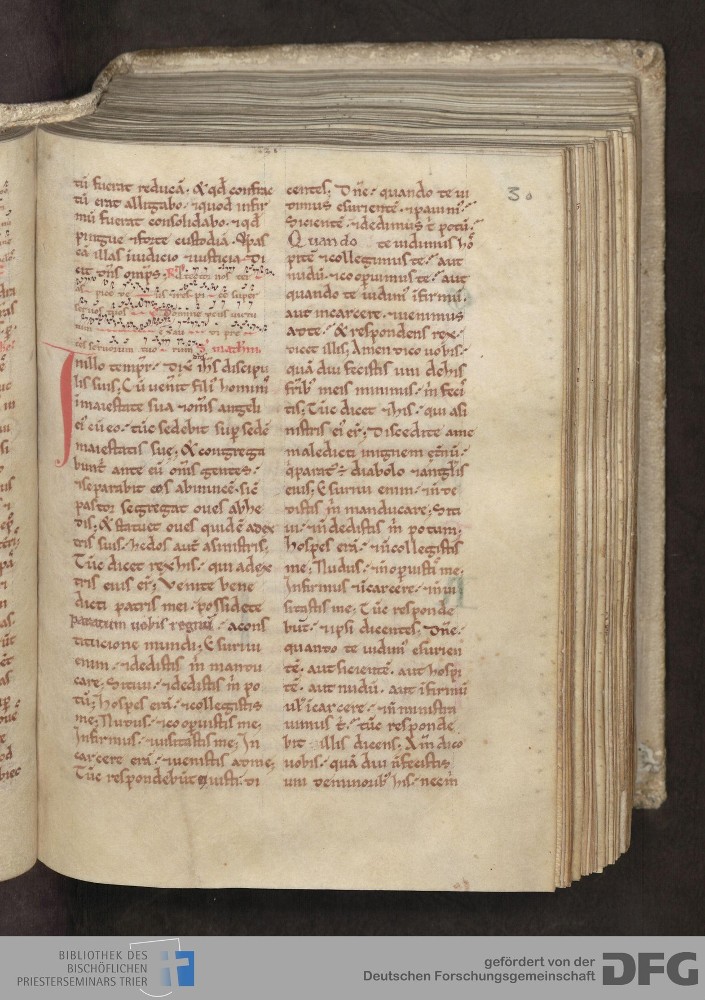 tū fuerat reducā. & qd̄ confrac
tū erat alligabo. ⁊quod infir
mū fuerat consolidabo. ⁊qd̄
pingue ⁊forte custodiā. &pas
cā illas iudicio ⁊iusticia. Di
cit dn̄s omp̄s.
Inillo tempr̄. Dix̄ ih̄s discipu
lis suis; Cū uen̄it fili᷒ homini᷒
īmaiestate sua ⁊om̄s angeli
ei᷒ cū eo. tūc sedebit sup̄ sedē
maiestatis sue; & congrega
bunt᷑ ante eū om̄s gentes.
⁊separabit eos abinuicē. sic̄
pastor segregat oues abhe
dis; & statuet oues quidē adex
tris suis. hedos aut̄ asinistris;
Tūc dicet rex his. qui adex
tris eius er̄; Venite bene
dicti patris mei. possidete
paratum uobis regnū. acons
titucione mundi; Esuriui
enim. ⁊dedistis m̄ mandu
care; Sitiui. ⁊dedistis m̄ po
tū; hospes erā. ⁊collegistis
me; Nudus. ⁊cooperuistis me;
Infirmus. ⁊uisitastis me; In
carcere erā. ⁊uenistis adme;
Tūc respondebūt ei iusti. di
30
centes; Dn̄e. quando te ui
dimus esurientē. ⁊pauim᷒.
Sicientē. ⁊dedimus t̄ potū.
Quando te uidimus ho
pitē ⁊collegimus te. aut
nudū. ⁊cooperuimus te. aut
quando te uidim᷒ īfirmū.
aut incarcere. ⁊uenimus
adte. & respondens rex.
dicet illis; Amen dico uobis.
quā diu fecistis uni dehis
frib᷒ meis minimis. m̄ feci
tis; Tūc dicet ⁊his. qui asi
nistris ei᷒ er̄; Discedite ame
maledicti inignem et̄nū.
q̄parat᷒ ē diabolo ⁊anglis
eius; Esuriui enim. ⁊n̄ de
distis m̄ manducare; Siti
ui. ⁊n̄ dedistis m̄ potum;
hospes erā. ⁊n̄collegistis
me; Nudus. ⁊n̄ operuisti᷒ me;
Infirmus ⁊īcarcere. ⁊n̄ ui
sitastis me; Tūc responde
būt. ⁊ipsi dicentes; Dn̄e.
quando te uidim᷒ esurien
tē. aut sicientē. aut hospi
tē. aut nudū. aut īfirmū
ul̄ icarcere. ⁊n̄ ministra
uimus t̄. tūc responde
bit illis dicens; Am̄ dico
uobis. quā diu n̄fecistis
uni deminorib᷒ his. necm̄
BIBLIOTHEK DES
BISCHÖFLICHEN
PRIESTERSEMINARS TRIER
gefördert von der
Deutschen Forschungsgemeinschaft
DFG